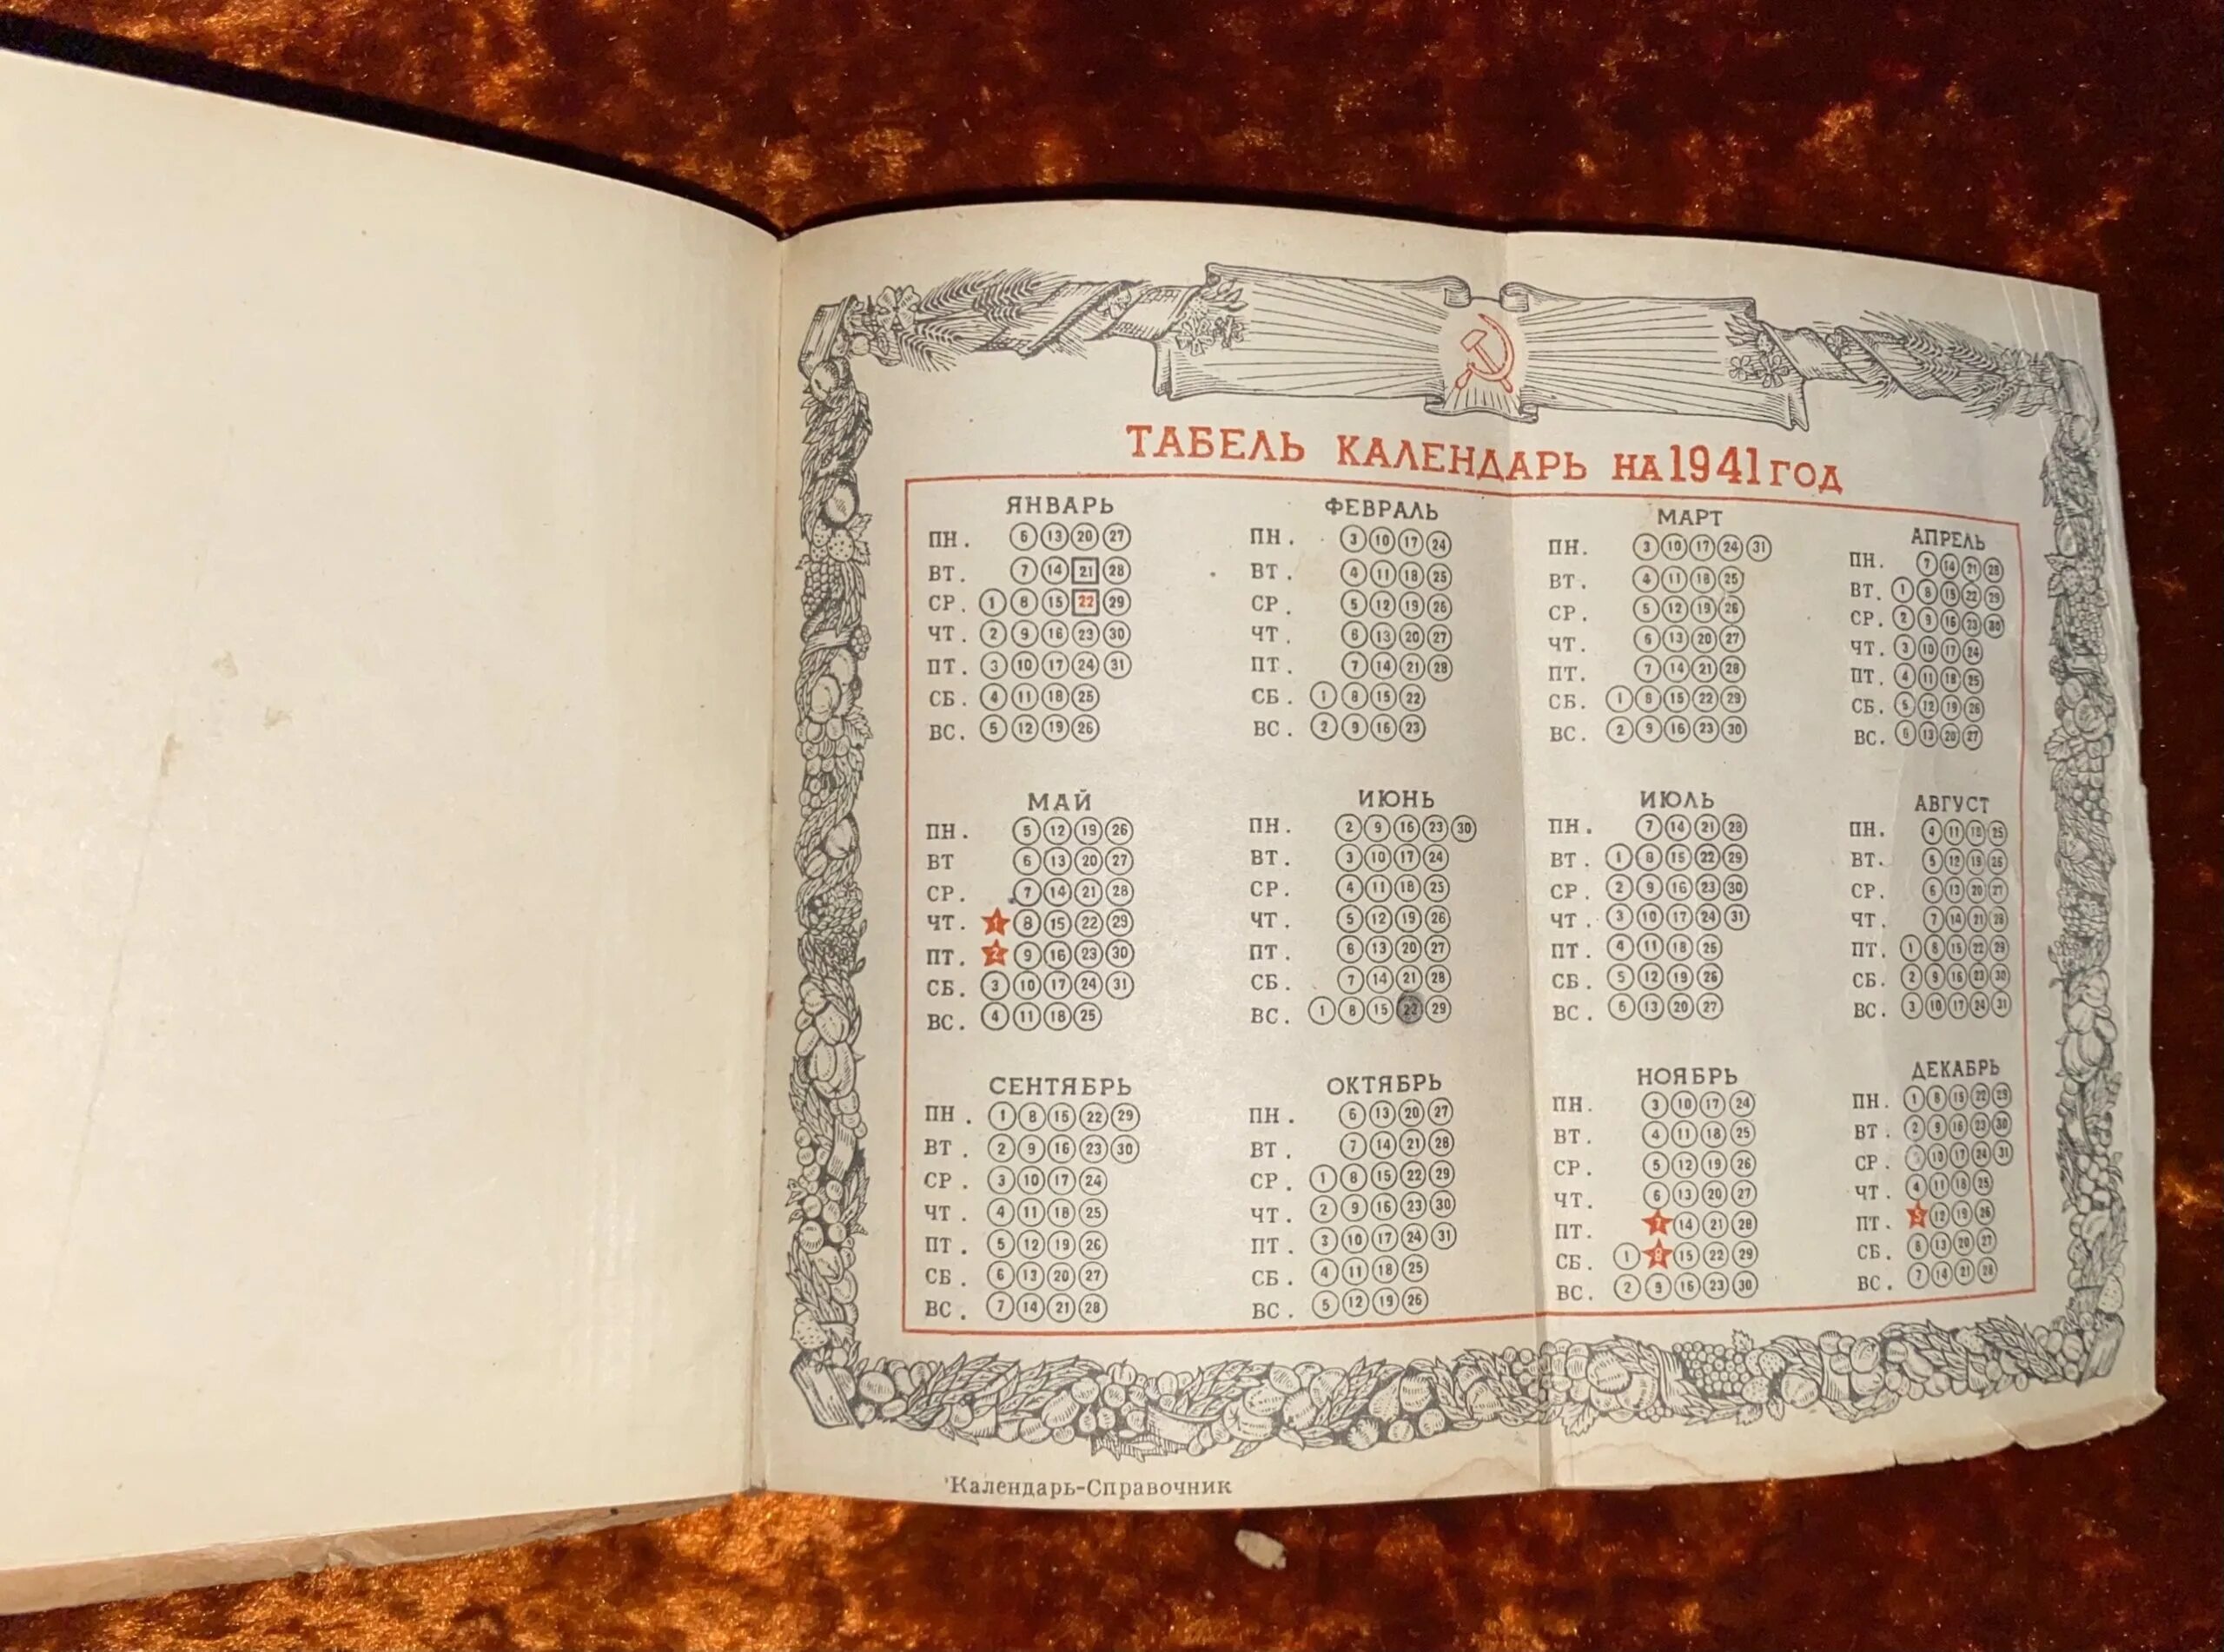 ТАБЕЛЬ КАЛЕНДАРЬ НА 1941 ГОД
ЯНВАРЬ
ПН. 6 13 20 27
ВТ. 7 14 21 28
СР. 1 8 15 22 29
ЧТ. 2 9 16 23 30
ПТ. 3 10 17 24 31
СБ. 4 11 18 25
ВС. 5 12 19 26
ФЕВРАЛЬ
ПН. 3 10 17 24
ВТ. 4 11 18 25
СР. 5 12 19 26
ЧТ. 6 13 20 27
ПТ. 7 14 21 28
СБ. 1 8 15 22
ВС. 2 9 16 23
МАРТ
ПН. 3 10 17 24 31
ВТ. 4 11 18 25
СР. 5 12 19 26
ЧТ. 6 13 20 27
ПТ. 7 14 21 28
СБ. 1 8 15 22 29
ВС. 2 9 16 23 30
АПРЕЛЬ
ПН. 7 14 21 28
ВТ. 1 8 15 22 29
СР. 2 9 16 23 30
ЧТ. 3 10 17 24
ПТ. 4 11 18 25
СБ. 5 12 19 26
ВС. 6 13 20 27
МАЙ
ПН. 5 12 19 26
ВТ 6 13 20 27
СР. 7 14 21 28
ЧТ. 1 8 15 22 29
ПТ. 2 9 16 23 30
СБ. 3 10 17 24 31
ВС. 4 11 18 25
ИЮНЬ
ПН. 2 9 16 23 30
ВТ. 3 10 17 24
СР. 4 11 18 25
ЧТ. 5 12 19 26
ПТ. 6 13 20 27
СБ. 7 14 21 28
ВС. 1 8 15 22 29
ИЮЛЬ
ПН. 7 14 21 28
ВТ. 1 8 15 22 29
СР. 2 9 16 23 30
ЧТ. 3 10 17 24 31
ПТ. 4 11 18 25
СБ. 5 12 19 26
ВС. 6 13 20 27
АВГУСТ
ПН. 4 11 18 25
ВТ. 5 12 19 26
СР. 6 13 20 27
ЧТ. 7 14 21 28
ПТ. 1 8 15 22 29
СБ. 2 9 16 23 30
ВС. 3 10 17 24 31
СЕНТЯБРЬ
ПН. 1 8 15 22 29
ВТ. 2 9 16 23 30
СР. 3 10 17 24
ЧТ. 4 11 18 25
ПТ. 5 12 19 26
СБ. 6 13 20 27
ВС. 7 14 21 28
ОКТЯБРЬ
ПН. 6 13 20 27
ВТ. 7 14 21 28
СР. 1 8 15 22 29
ЧТ. 2 9 16 23 30
ПТ. 3 10 17 24 31
СБ. 4 11 18 25
ВС. 5 12 19 26
НОЯБРЬ
ПН. 3 10 17 24
ВТ. 4 11 18 25
СР. 5 12 19 26
ЧТ. 6 13 20 27
ПТ. 7 14 21 28
СБ. 1 8 15 22 29
ВС. 2 9 16 23 30
ДЕКАБРЬ
ПН. 1 8 15 22 29
ВТ. 2 9 16 23 30
СР. 10 17 24 31
ЧТ. 4 11 18 25
ПТ. 5 12 19 26
СБ. 6 13 20 27
ВС. 7 14 21 28
Календарь-Справочник